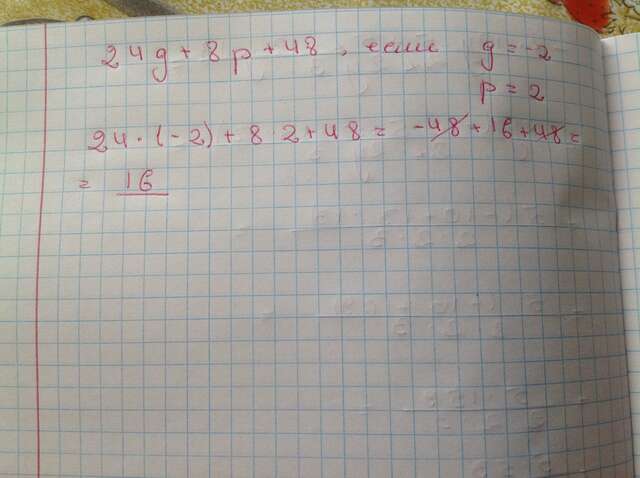 24g + 8p + 48, если g = -2
p = 2
24 · (-2) + 8 · 2 + 48 = -48 + 16 + 48 =
= 16